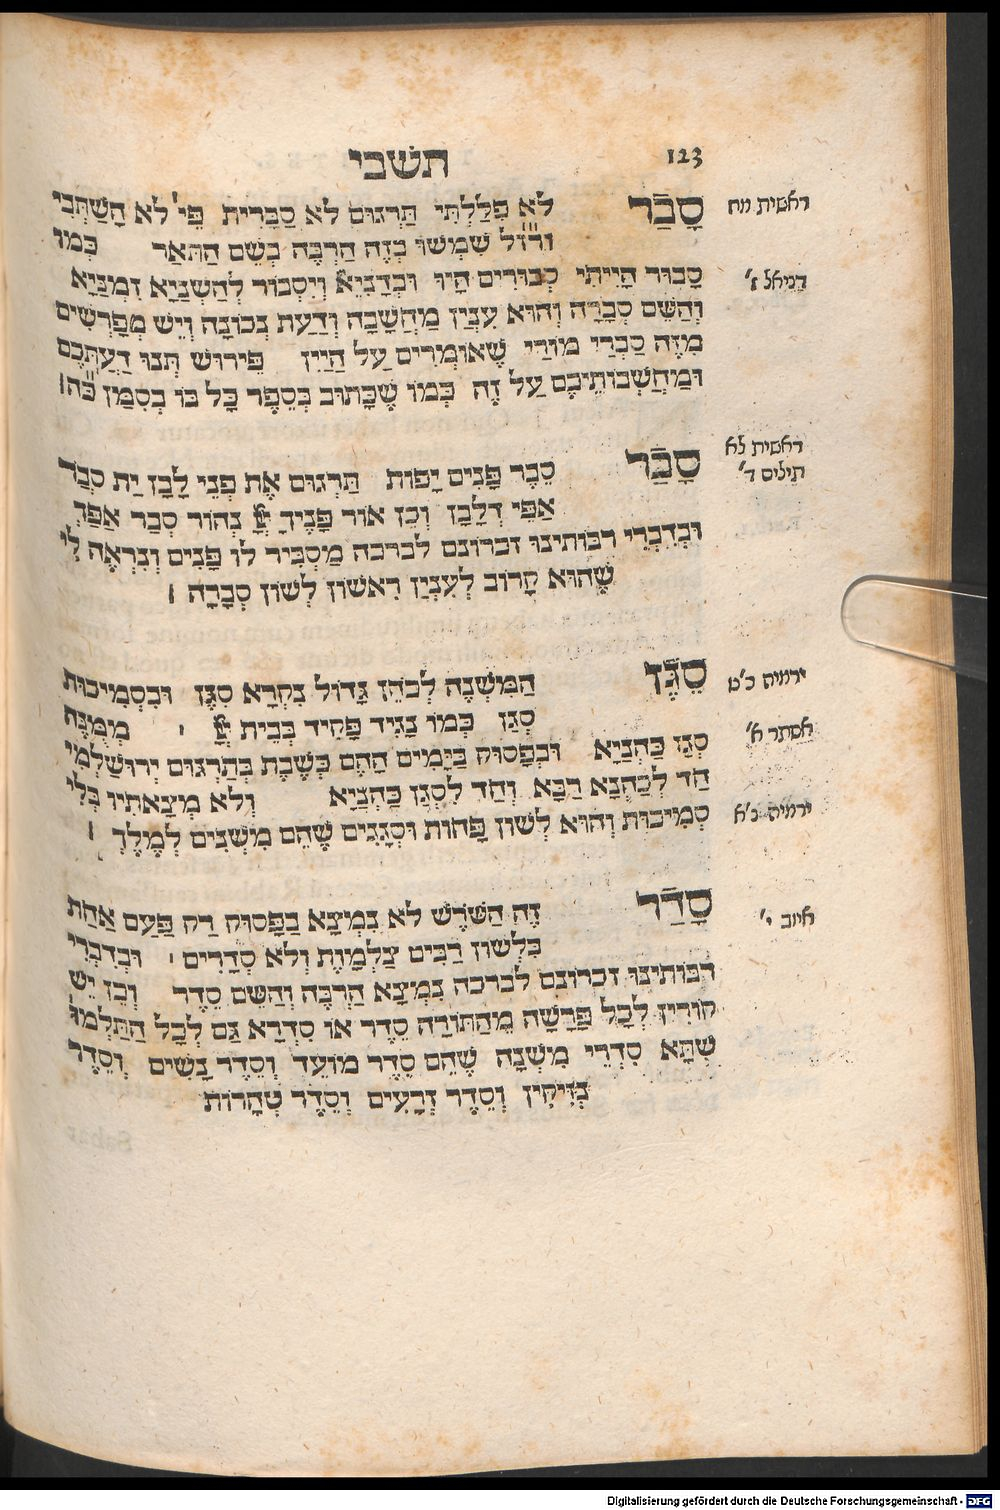 תשבי 123
סָבַר לֹא פִלָּלְתִּי תַּרְגּוּם לֹא סַבָּרִית פֵּי' לֹא חָשַׁבְתִּי
ורז"ל שִׁמְּשׁוּ בְּזֶה הַרְבֵּה בְּשֵׁם הַתֹּאַר כְּמוֹ
סָבוּר הָיִיתִי סְבוּרִים הָיוּ וּבְדָנִיֵּאל וְיִסְבּוֹר לְהַשְׁנָיָא זִמְנַיָּא
וְהַשֵּׁם סְבָרָה וְהוּא עִנְיַן מַחֲשָׁבָה וְדַעַת נְכוֹנָה וְיֵשׁ מְפָרְשִׁים
מִזֶּה סַבְרֵי מוֹרַי שֶׁאוֹמְרִים עַל הַיַּיִן פֵּירוּשׁ תְּנוּ דַעְתְּכֶם
וּמַחְשְׁבוֹתֵיכֶם עַל זֶה כְּמוֹ שֶׁכָּתוּב בְּסֵפֶר כָּל בּוֹ בְסִמָּן כ"ה׃
סָבַר סֵבֶר פָּנִים יָפוֹת תַּרְגּוּם אֶת פְּנֵי לָבָן יַת סְבַר
אַפֵּי דְלָבָן וְכֵן אוֹר פָּנֶיךָ יְיָ נְהוֹר סְבַר אַפָּךְ
וּבְדִבְרֵי רַבּוֹתֵינוּ זכרונם לברכה מַסְבִּיר לוֹ פָּנִים וְנִרְאֶה לִי
שֶׁהוּא קָרוֹב לְעִנְיַן רִאשׁוֹן לְשׁוֹן סְבָרָה ׃
סֶגֶן הַמִּשְׁנֶה לְכֹהֵן גָּדוֹל נִקְרָא סֶגֶן וּבִסְמִיכוּת
סְגַן כְּמוֹ נָגִיד פָּקִיד בְּבֵית יְיָ ׳ מְמֻנֶּה
סְגַן כַּהֲנַיָּא וּבְפָסוּק בַּיָּמִים הָהֵם כְּשֶׁבֶת בְּתַרְגּוּם יְרוּשַׁלְמִי
חַד לְכַהֲנָא רַבָּא וְחַד לִסְגַן כַּהֲנַיָּא וְלֹא מְצָאתִיו בְּלִי
סְמִיכוּת וְהוּא לְשׁוֹן פַּחוֹת וּסְגָנִים שֶׁהֵם מִשְׁנִים לְמֶלֶךְ ׃
סָדַר זֶה הַשֹּׁרֶשׁ לֹא נִמְצָא בַפָּסוּק רַק פַּעַם אַחַת
בִּלְשׁוֹן רַבִּים צַלְמָוֶת וְלֹא סְדָרִים ׳ וּבְדִבְרֵי
רַבּוֹתֵינוּ זכרונם לברכה נִמְצָא הַרְבֵּה וְהַשֵּׁם סֵדֶר וְכֵן יֵשׁ
קוֹרִין לְכָל פָּרָשָׁה מֵהַתּוֹרָה סֵדֶר אוֹ סִדְרָא גַּם לְכָל הַתַּלְמוּד
שִׁתָּא סִדְרֵי מִשְׁנָה שֶׁהֵם סֵדֶר מוֹעֵד וְסֵדֶר נָשִׁים וְסֵדֶר
נְזִיקִין וְסֵדֶר זְרָעִים וְסֵדֶר טְהָרוֹת
ראשית מח
דניאל ז'
ראשית לא
תילים ד'
ירמיה כ'ט
אסתר א'
ירמיה נ'א
איוב י'
Digitalisierung gefördert durch die Deutsche Forschungsgemeinschaft - DFG